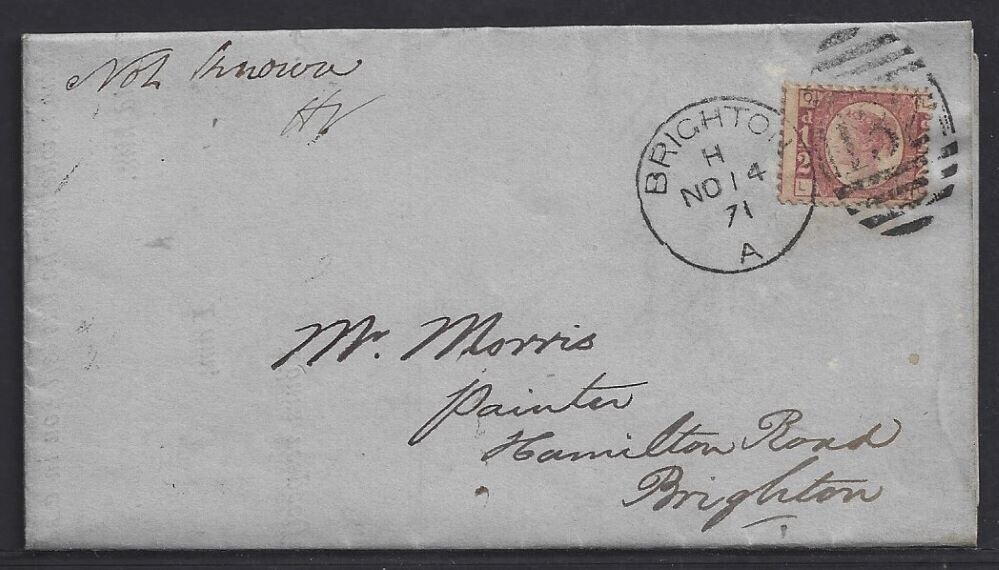 Not known
BRIGHTON
H
NO 14
71
A
d
1/2
L
Mr. Morris
Painter
Hamilton Road
Brighton